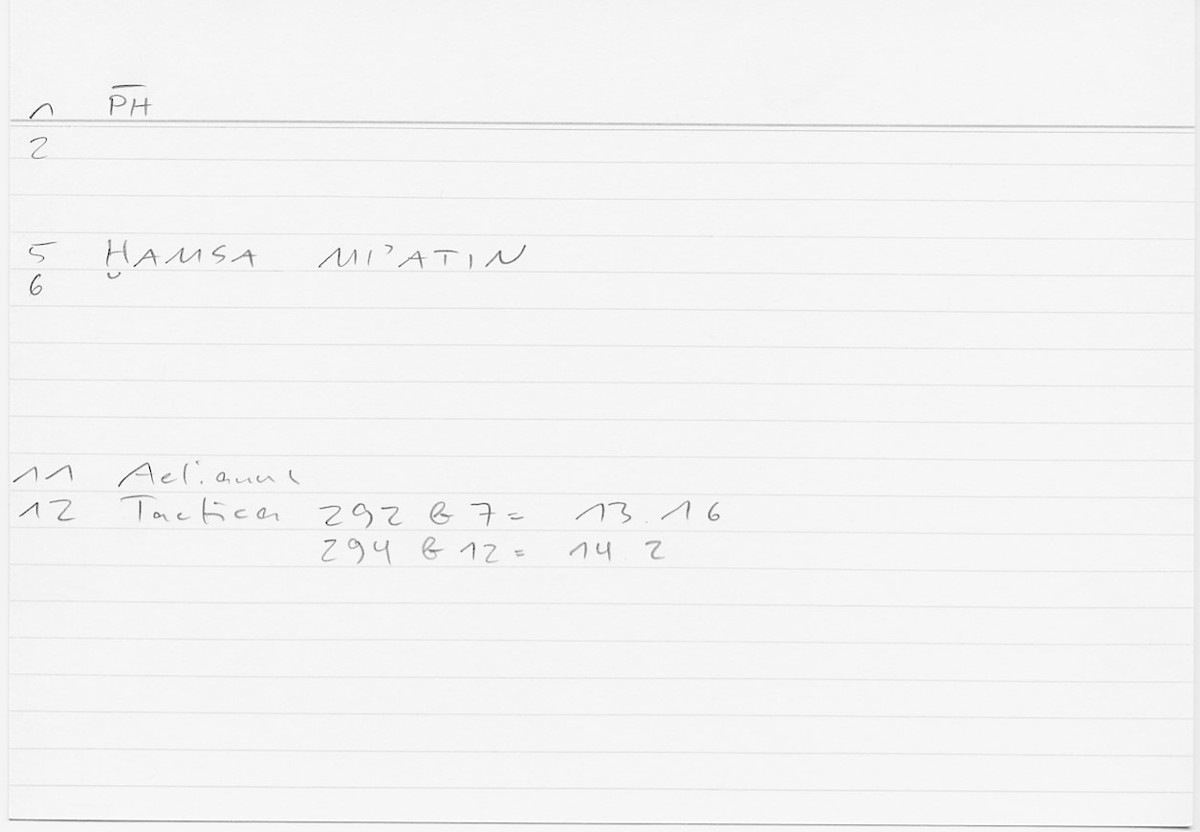 1 P̅H
2
5 ḪAMSA MI'ATIN
6
11 Aelianus
12 Tactica 292 b 7 = 13.16
294 b 12 = 14 2